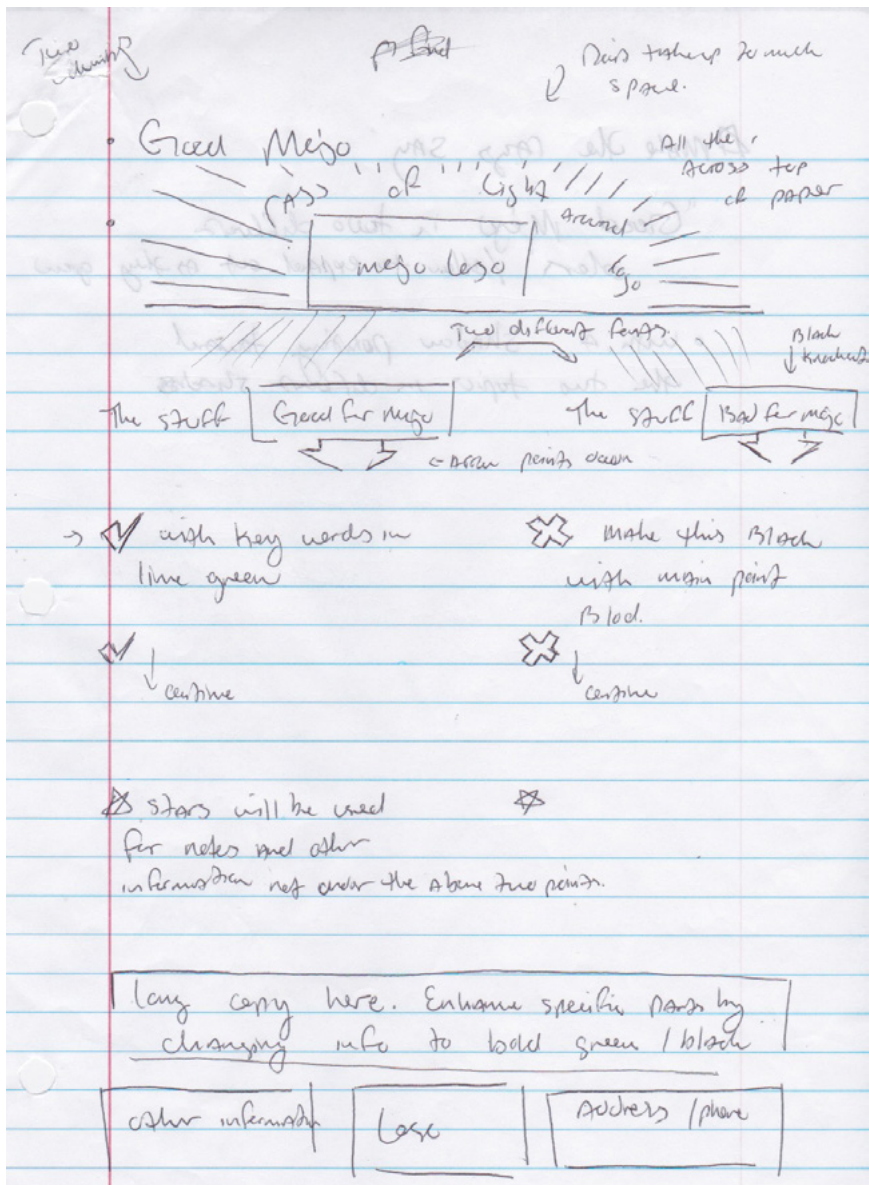 Two
Dots takeup to much
space.
Good Mojo
All the
Across top
of paper
rays of Light
Around
mojo logo
logo
Two different fonts
Black
knockout
The stuff Good for mojo
The stuff BAD for mojo
← Arrow points down
→ with key words in
lime green
make this Black
with main point
Blod.
continue
continue
stars will be used
for notes and other
information not under the above two points.
long copy here. Enhance specific parts by
changing info to bold green / black
other information
Logo
Address / phone